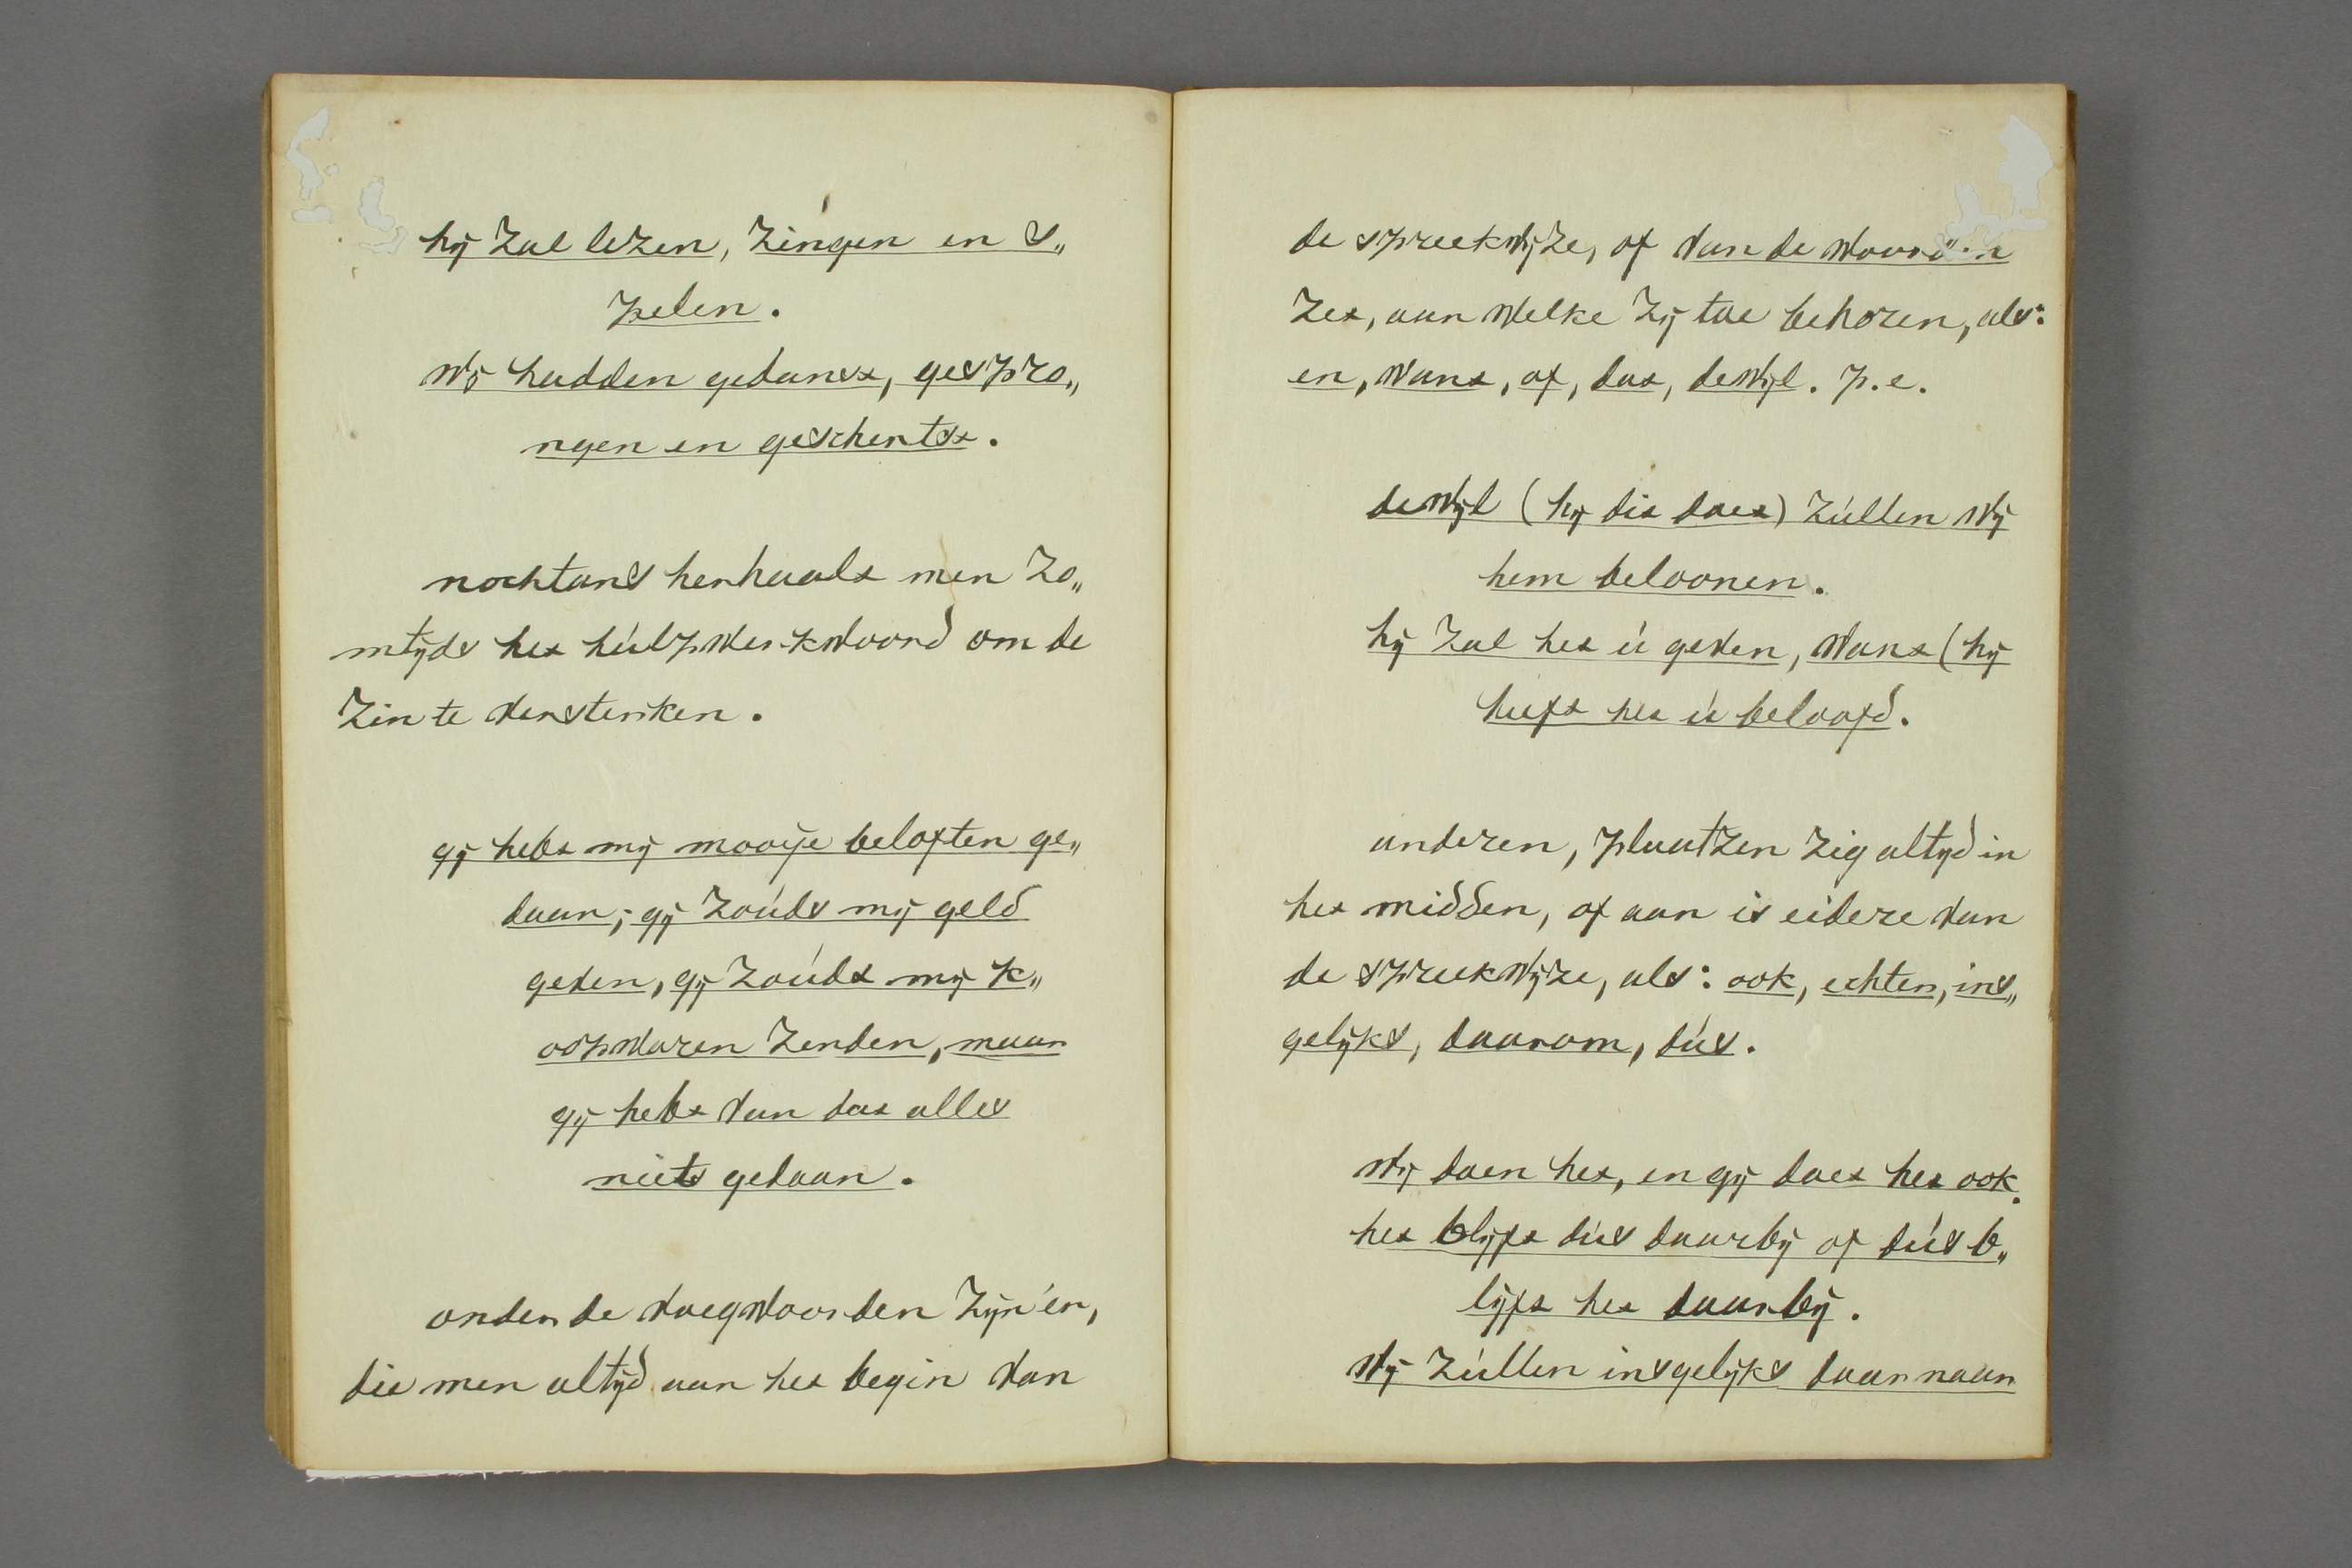 hij zal lezen, zingen en s„
pelen.
wij hadden gedanst, gespro„
ngen en geschertst.
nochtans herhaalt men zo„
mtyds het hulpwerkwoord om de
zin te versterken.
gij hebt mij mooije beloften ge„
daan; gij zoudt mij geld
geven, gij zoudt mij k„
oopwaren zenden, maar
gij hebt van dat alles
niets gedaan.
onder de voegwoorden zijn 'er,
die men altijd aan het begin van
de spreekwijze, of van de woorden
zet, aan welke zij toe behoren, als:
en, want, of, dat, dewijl. p.e.
dewijl (hij dit doet) zullen wij
hem beloonen.
hij zal het u geven, want (hij
heeft het u beloofd.
anderen, plaatzen zig altijd in
het midden, of aan it eidere van
de spreekwijze, als: ook, echter, ins„
gelijks, daarom, dus.
wij doen het, en gij doet het ook.
het blijft dus daarbij of dus b„
lijft het daarbij.
wij zullen insgelijks daar naar